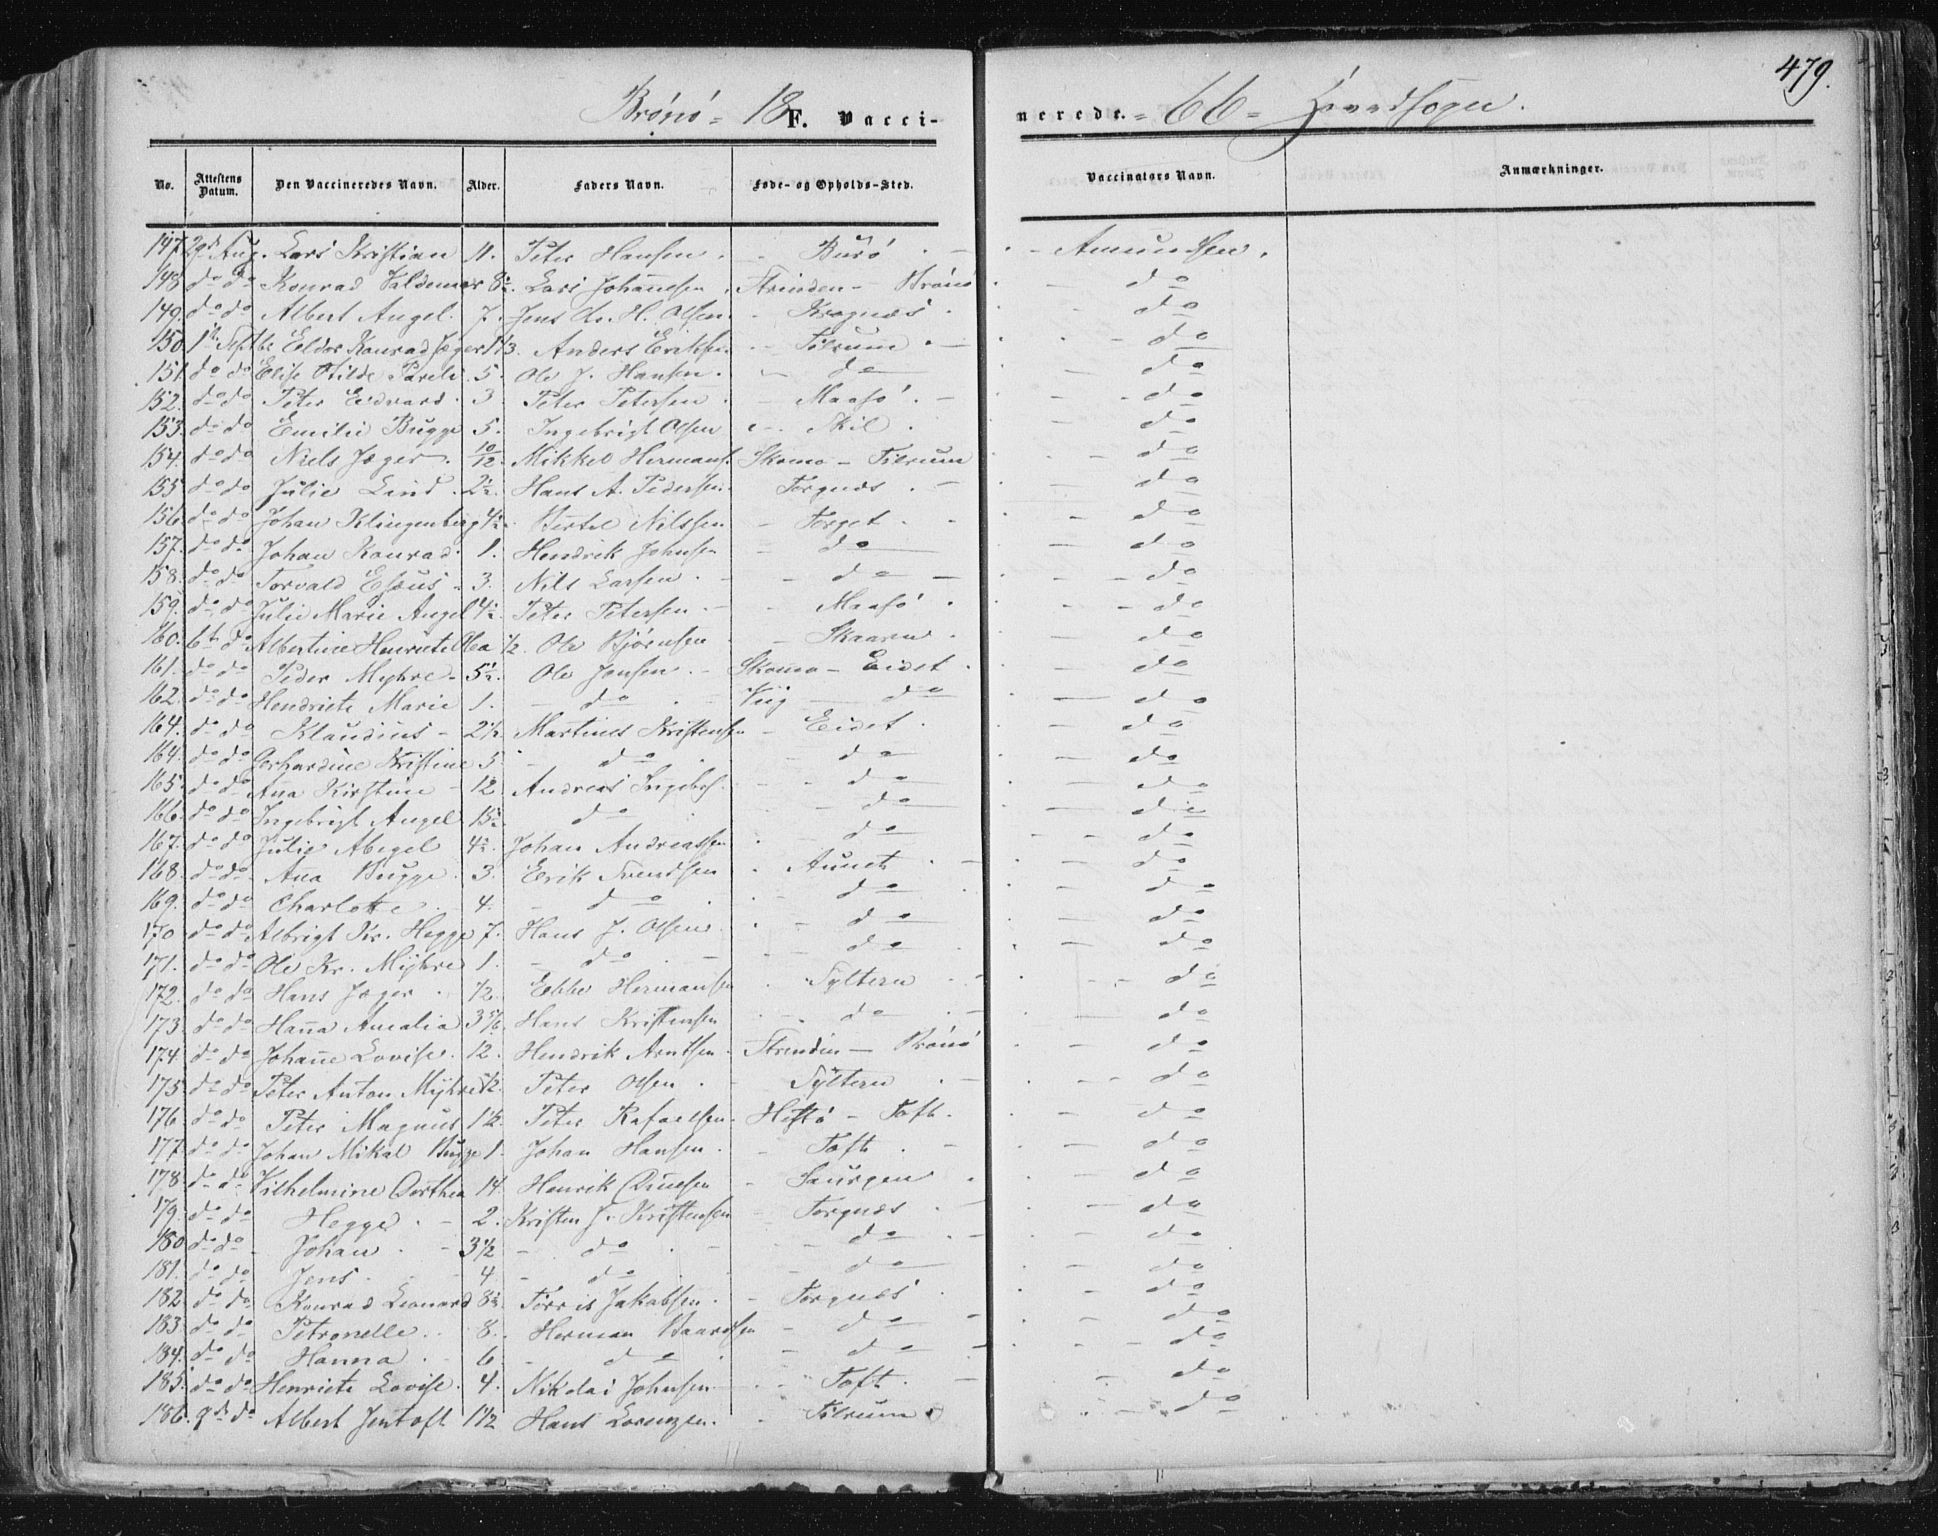 479.
Brönö = 18 F. Vacci-nerede. = 66 =
No. Attestens Datum. Den Vaccineredes Navn. Alder. Faders Navn. Føde- og Opholds-Sted. Vaccinators Navn. Anmærkninger.
147. 29d Aug. Lars Kristian 11. Peter Hansen. Burö Amundsen.
148. do do Konrad Valdemar 8½. Lars Johannesen. Strinden - Brönö do
149. do do Albert Angel. 7. Jens Chr. H. Olsen. Kragnæs do
150. 1ste Septbr Eldor Konrad Jæger 1 1/3. Anders Eriksen. Tilrum do
151. do do Elise Otilde Pareli. 5. Ole J. Hansen. do do
152. do do Peter Edvard. 3 Peter Petersen. Maasö. do
153. do do Emilie Bugge 5. Ingebrigt Olsen Skil. do
154. do do Niels Jæger. 10/12. Mikkel Hermans. Skomo - Tilrum do
155 do do Julie Lind. 2½. Hans A. Pedersen. Torgnæs. do
156. do do Johan Klingenberg 4½. Bertel Nilssen Torget. do
157. do do Johan Konrad. 1. Hendrik Johnsen do do
158. do do Torvald Esæus 3. Nils Larsen. do do
159. do do Julie Marie Angel 4½. Peter Petersen. Maasö. do
160. 6te do Albertine Henriete Olea ½. Ole Björnsen Skaaren. do
161. do do Peder Myhre 5½. Ole Jonsen. Skomo - Eidet do
162. do do Hendriete Marie 1. do Viig do do
164. do do Klaudius 2½. Martines Kristensen Eidet. do
164. do do Gerhardine Kristine 5 do do do
165. do do Ana Kirstine 12 Andreas Ingebr. do do
166. do do Ingebrigt Angel 15½. do do do
167. do do Julie Abigel 4½. Johan Andreassen do do
168. do do Ana Bugge. 3. Erik Svendsen Aunet. do
169. do do Charlotte. 4. do do do
170. do do Albrigt Kr. Hegge 7. Hans J. Olsen. do do
171. do do Ole Kr. Myhre 1. do do do
172. do do Hans Jæger. ½. Ebbe Hermansen Tyltern do
173. do do Hanna Amalia 3 5/6. Hans Kristensen do do
174. do do Johanne Lovise. 12. Hendrik Arntsen. Strinden - Brönö do
175 do do Peter Anton Myhre ½. Peter Olsen. Tyltern do
176. do do Peter Magnus 1½. Peter Rafaelsen. Hestö - Toft. do
177. do do Johan Mikal Bugge 1. Johan Hansen. Toft. do
178. do do Vilhelmine Dorthea 14. Henrik Saurgen do
179. do do Hegge. 2. Kristen J. Kristensen Torgnæs do
180 do do Johan. 3½ do do do
181. do do Jens. 4. do do do
182. do do Konrad Leonard 8½. Torris Jakobsen. Torgnæs do
183. do do Petronelle. 8. Herman Baardsen do do
184. do do Hanna. 6. do do do
185. do do Henriete Lovise. 4. Nikolai Johnsen Toft. do
186. 9de do Albert Jentoft 1½ Hans Lorenzen. Tilrum do